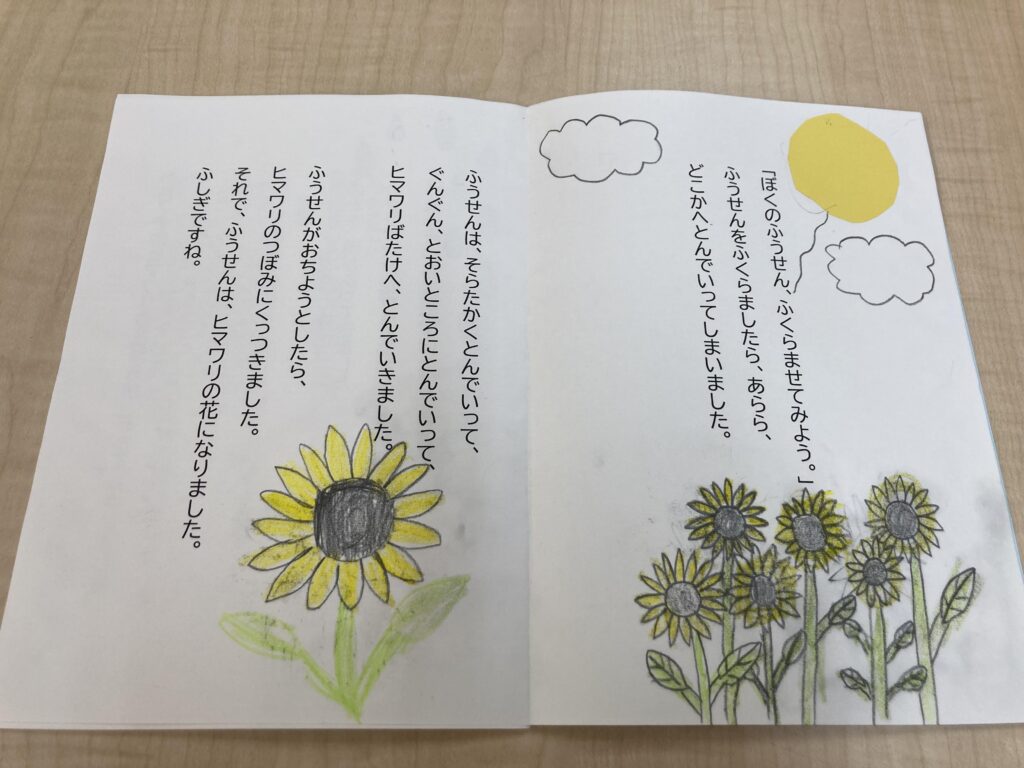 「ぼくのふうせん、ふくらませてみよう。」
ふうせんをふくらましたら、あらら、
どこかへとんでいってしまいました。
ふうせんは、そらたかくとんでいって、
ぐんぐん、とおいところにとんでいって、
ヒマワリばたけへ、とんでいきました。
ふうせんがおちようとしたら、
ヒマワリのつぼみにくっつきました。
それで、ふうせんは、ヒマワリの花になりました。
ふしぎですね。